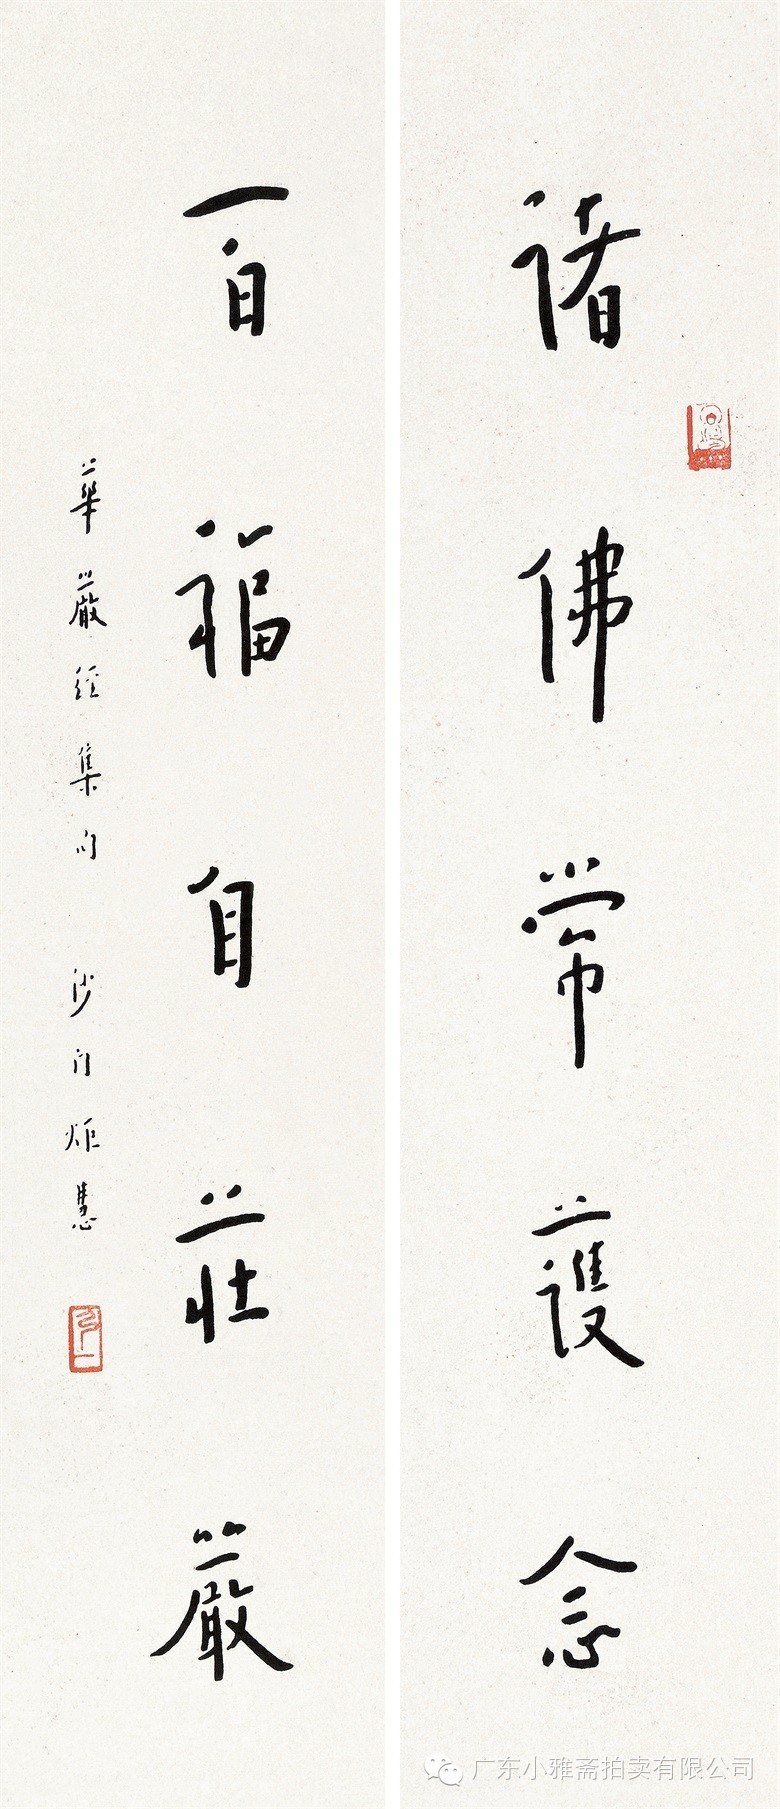 諸佛常護念
百福自莊嚴
華嚴經集句 沙門炬慧
广东小雅斋拍卖有限公司